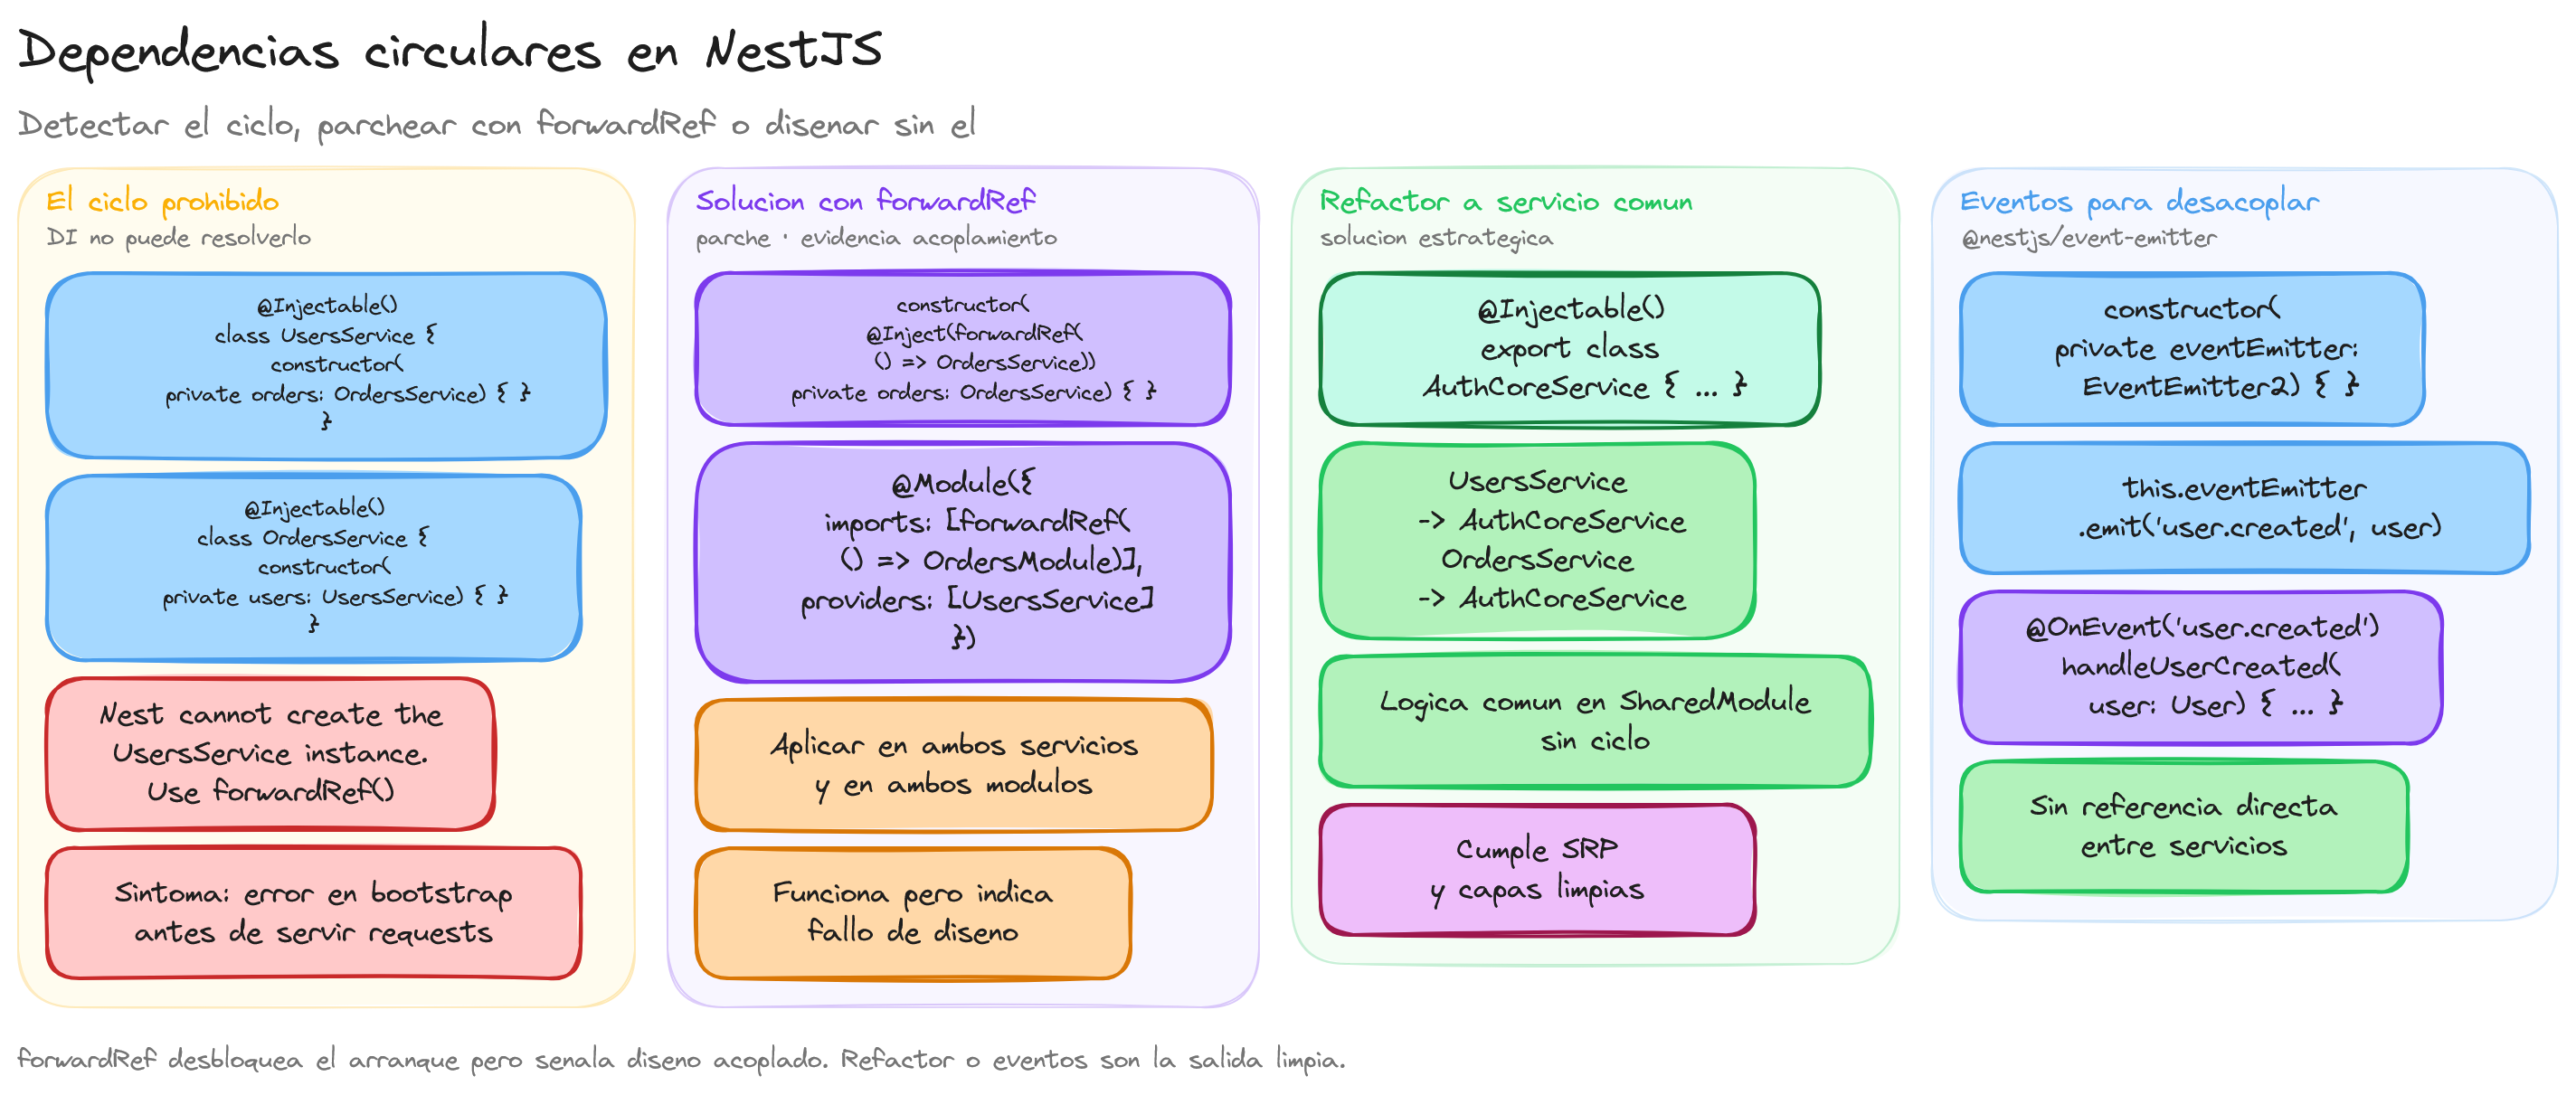 Dependencias circulares en NestJS
Detectar el ciclo, parchear con forwardRef o disenar sin el
El ciclo prohibido
DI no puede resolverlo
@Injectable()
class UsersService {
constructor(
private orders: OrdersService) { }
}
@Injectable()
class OrdersService {
constructor(
private users: UsersService) { }
}
Nest cannot create the
UsersService instance.
Use forwardRef()
Sintoma: error en bootstrap
antes de servir requests
Solucion con forwardRef
parche · evidencia acoplamiento
constructor(
@Inject(forwardRef(
() => OrdersService))
private orders: OrdersService) { }
@Module({
imports: [forwardRef(
() => OrdersModule)],
providers: [UsersService]
})
Aplicar en ambos servicios
y en ambos modulos
Funciona pero indica
fallo de diseno
Refactor a servicio comun
solucion estrategica
@Injectable()
export class
AuthCoreService { ... }
UsersService
-> AuthCoreService
OrdersService
-> AuthCoreService
Logica comun en SharedModule
sin ciclo
Cumple SRP
y capas limpias
Eventos para desacoplar
@nestjs/event-emitter
constructor(
private eventEmitter:
EventEmitter2) { }
this.eventEmitter
.emit('user.created', user)
@OnEvent('user.created')
handleUserCreated(
user: User) { ... }
Sin referencia directa
entre servicios
forwardRef desbloquea el arranque pero senala diseno acoplado. Refactor o eventos son la salida limpia.